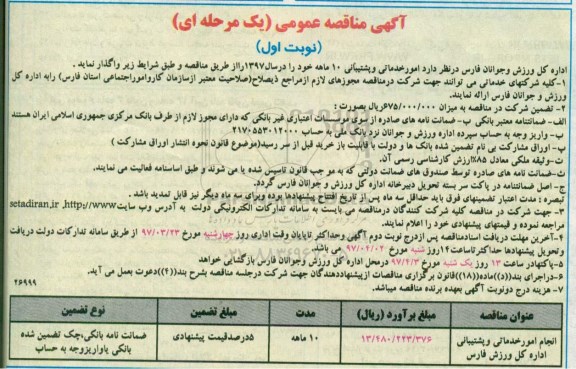 آگهی مناقصه عمومی (یک مرحله ای)
(نوبت اول)
اداره کل ورزش وجوانان فارس درنظر دارد امورخدماتی وپشتیبانی ۱۰ ماهه خود را درسال۱۳۹۷رااز طریق مناقصه و طبق شرایط زیر واگذار نماید .
۱-کلیه شرکتهای خدماتی می توانند جهت شرکت درمناقصه مجوزهای لازم ازمراجع ذیصلاح(صلاحیت معتبر ازسازمان کارواموراجتماعی استان فارس) رابه اداره کل
ورزش و جوانان فارس ارائه نمایند.
۲- تضمین شرکت در مناقصه به میزان ۶۷۵/۰۰۰/۰۰۰ریال بصورت :
الف- ضمانتنامه معتبر بانکی ب- ضمانت نامه های صادره از سوی موسسات اعتباری غیر بانکی که دارای مجوز لازم از طرف بانک مرکزی جمهوری اسلامی ایران هستند
ب- واریز وجه به حساب سپرده اداره ورزش و جوانان نزد بانک ملی به حساب ۲۱۷۰۵۵۳۰۱۲۰۰۰
پ- اوراق مشارکت بی نام تضمین شده بانک ها و دولت با قابلیت باز خرید قبل از سر رسید(موضوع قانون نحوه انتشار اوراق مشارکت )
ت-وثیقه ملکی معادل ۸۵٪ارزش کارشناسی رسمی آن.
ث-ضمانت نامه های صادره توسط صندوق های ضمانت دولتی که به مو جب قانون تاسیس شده یا می شوند و طبق اساسنامه فعالیت می نمایند.
ج- اصل ضمانتنامه در پاکت سر بسته تحویل دبیرخانه اداره کل ورزش و جوانان فارس گردد.
تبصره : مدت اعتبار تضمینهای فوق باید حداقل سه ماه پس از تاریخ افتتاح پیشنهادبوده وبرای سه ماه دیگر نیز قابل تمدید باشد .
۳- جهت شرکت در مناقصه کلیه شرکت کنندگان درمناقصه می بایست به سامانه تدارکات الکترونیکی دولت به آدرس وب سایت setadiran.ir ,http//www
مراجعه نموده و قیمتهای پیشنهادی خود را اعلام نمایند.
۴-آخرین مهلت دریافت اسنادمناقصه پس ازدرج نوبت دوم آگهی وحداکثر تاپایان وقت اداری روز چهارشنبه مورخ ۹۷/۰۳/۲۳ از طریق سامانه تدارکات دولت دریافت
وتحویل پیشنهادها حداکثرتاساعت۱۴روز شنبه مورخ ۹۷/۰۴/۰۲ می باشد.
۵-پاکتهادر ساعت ۱۳ روز یک شنبه مورخ ۹۷/۴/۳ درمحل اداره کل ورزش وجوانان فارس بازگشایی خواهد
۶-دراجرای بند(د)ماده(۱۸)قانون برگزاری مناقصات ازپیشنهاددهندگان جهت شرکت درجلسه مناقصه بشرح بند(۴)دعوت بعمل می آید.
۷- هزینه درج دونوبت آگهی بعهده برنده مناقصه میباشد. ۲۶۹۹۹
عنوان مناقصه مبلغ برآورد (ریال) مدت مبلغ تضمین نوع تضمین
انجام امورخدماتی وپشتیبانی ۱۳/۴۸۰/۲۴۳/۳۷۶ ۱۰ ماهه ۵درصدقیمت پیشنهادی ضمانت نامه بانکی،چک تضمین شده
اداره کل ورزش فارس بانکی یاواریزوجه به حساب